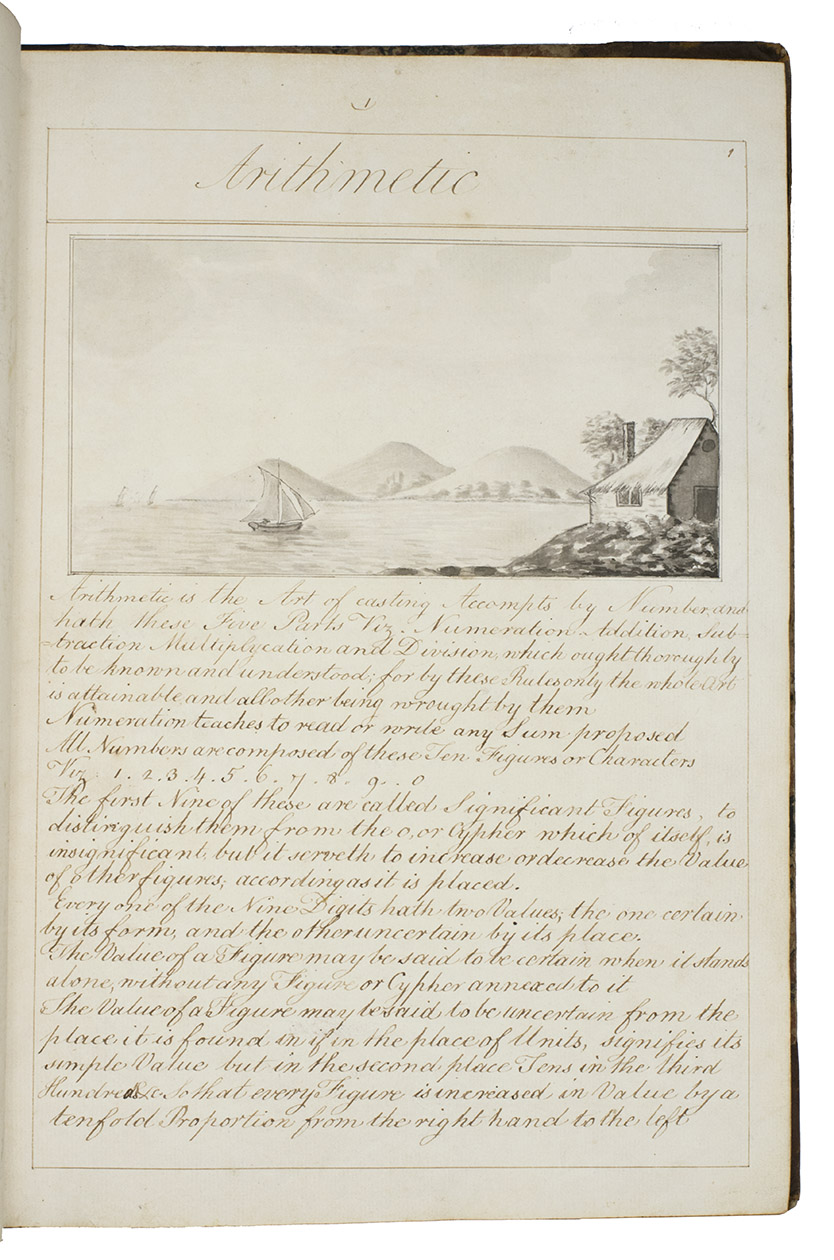 1
1
Arithmetic
Arithmetic is the Art of casting Accompts by Number, and
hath these Five Parts Viz. Numeration Addition, Sub-
=traction Multiplycation and Division, which ought thoroughly
to be known and understood; for by these Rules only the whole Art
is attainable, and all other being wrought by them
Numeration teaches to read or write any Sum proposed
All Numbers are composed of these Ten Figures or Characters
Viz. 1 . 2 . 3 . 4 . 5 . 6 . 7 . 8 . 9 . 0
The first Nine of these are called Significant Figures, to
distinguish them from the 0, or Cypher which of itself, is
insignificant, but it serveth to increase or decrease the Value
of other figures; according as it is placed.
Every one of the Nine Digits hath two Values; the one certain
by its form, and the other uncertain by its place.
The Value of a Figure may be said to be certain when it stands
alone, without any Figure or Cypher annexed to it
The Value of a Figure may be said to be uncertain from the
place it is found in if in the place of Units, signifies its
simple Value but in the second place Tens in the third
Hundreds &c So that every Figure is increased in Value by a
tenfold Proportion from the right hand to the left